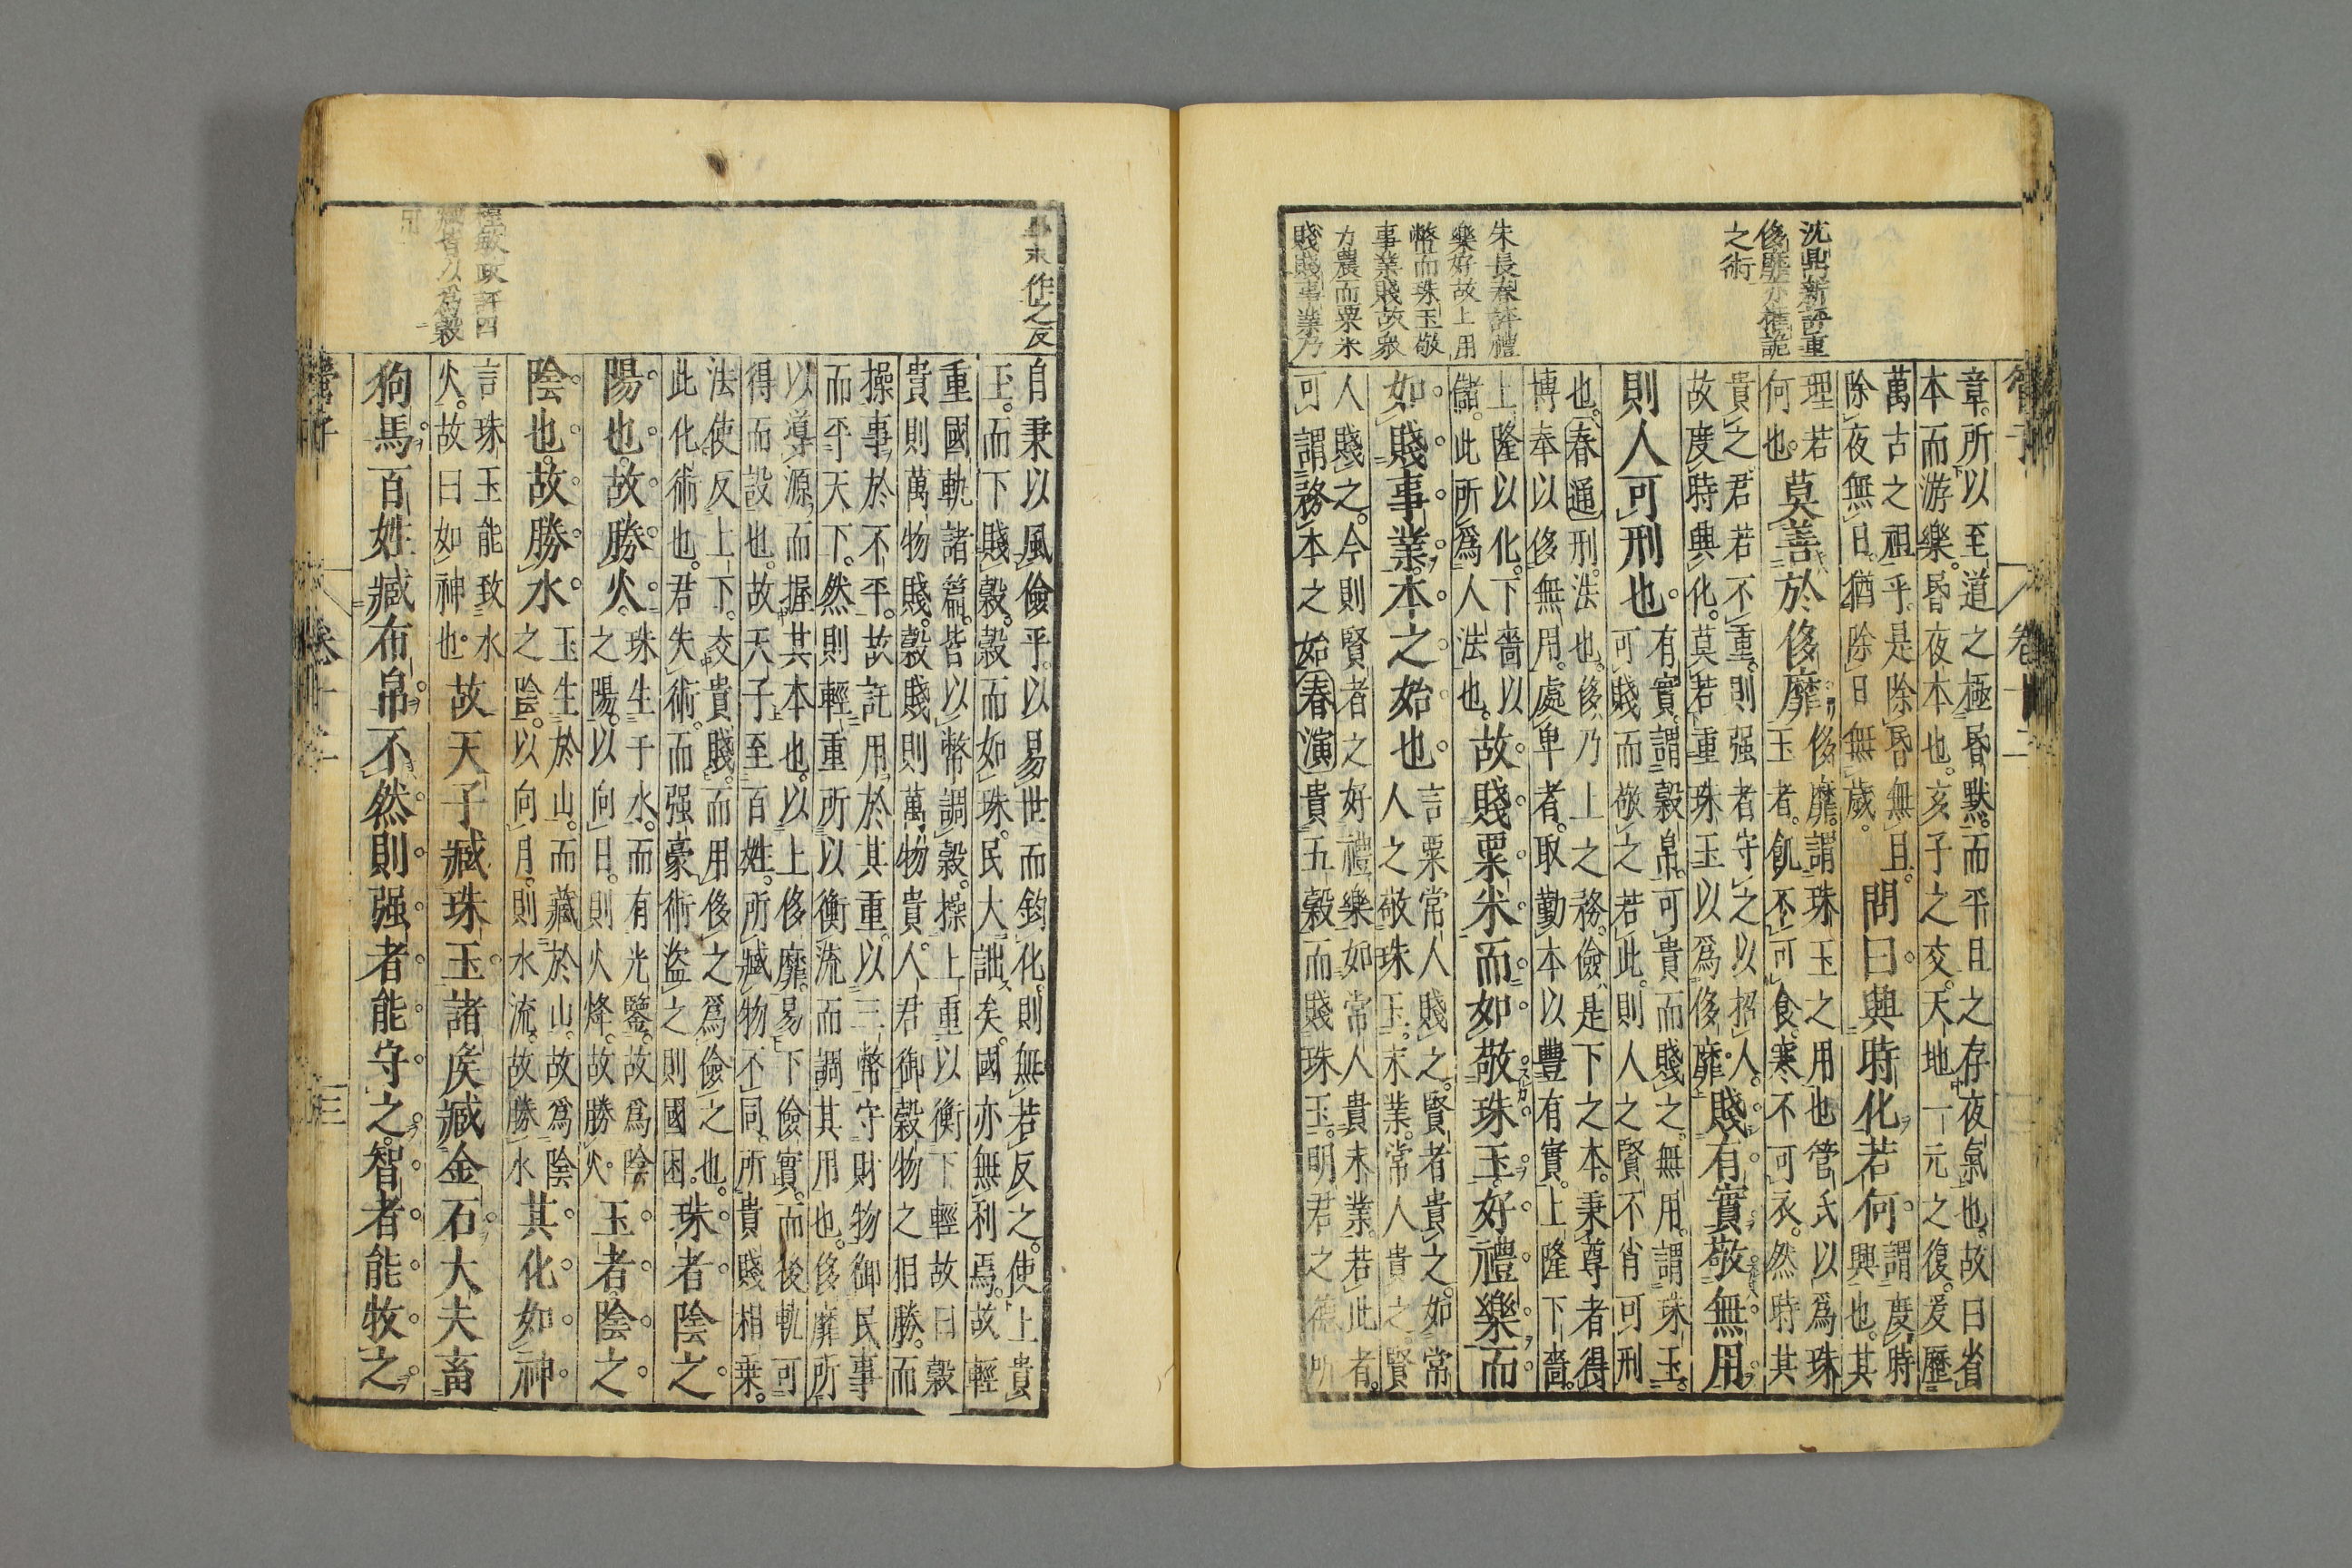 沈鼎新評重
侈靡亦權詭
之術
朱長春評禮
樂好故上用
幣而珠玉敬
事業賤故衆
力農而粟米
賤賤事業乃
章所以至道之極昏默而平旦之存夜氣也故曰省
本而游樂昏夜本也亥子之交天地一元之復爰歷
萬古之祖乎是除昏無旦
除夜無日猶除日無歲
問曰與時化若何
謂度時
興也其
理若
何也
莫善於侈靡
侈靡謂珠玉之用也管氏以爲珠
玉者飢不可食寒不可衣然時其
貴之君若不重則强者守之以招人
故度時興化莫若重珠玉以爲侈靡
賤有實敬無用
則人可刑也
有實謂穀帛可貴而賤之無用謂珠玉
可賤而敬之若此則人之賢不肖可刑
也春通刑法也侈乃上之務儉是下之本秉尊者得
博奉以侈無用處卑者取勤本以豐有實上隆下嗇
上隆以化下嗇以
儲此所爲人法也
故賤粟米而如敬珠玉好禮樂而
如賤事業本之始也
言粟常人賤之賢者貴之如常
人之敬珠玉末業常人貴之賢
人賤之今則賢者之好禮樂如常人貴末業若此者
可謂務本之始春演貴五穀而賤珠玉明君之德所
管子
卷十二
作之反
程敏政評四
臧皆以爲穀
自秉以風儉乎以易世而鈞化則無若反之使上貴
玉而下賤穀穀而如珠民大詘矣國亦無利焉故輕
重國軌諸篇皆以幣調穀操上重以衡下輕故曰穀
貴則萬物賤穀賤則萬物貴人君御穀物之相勝而
操事於不平故託用於其重以三幣守財物御民事
而平天下然則輕重所以衡流而調其用也侈靡所
以導源而握其本也以上侈靡易下儉實而後軌可
得而設也故天子至百姓所臧物不同所貴賤相乗
法使反上下交貴賤而用侈之爲儉之也
此化術也君失術而强豪術盜之則國困
珠者陰之
陽也故勝火
珠生于水而有光鑒故爲陰
之陽以向日則火烽故勝火
玉者陰之
陰也故勝水
玉生於山而藏於山故爲陰
之陰以向月則水流故勝水
其化如神
言珠玉能致水
火故曰如神也
故天子臧珠玉諸侯臧金石大夫畜
狗馬百姓臧布帛不然則强者能守之智者能牧之
管子
卷十二
三